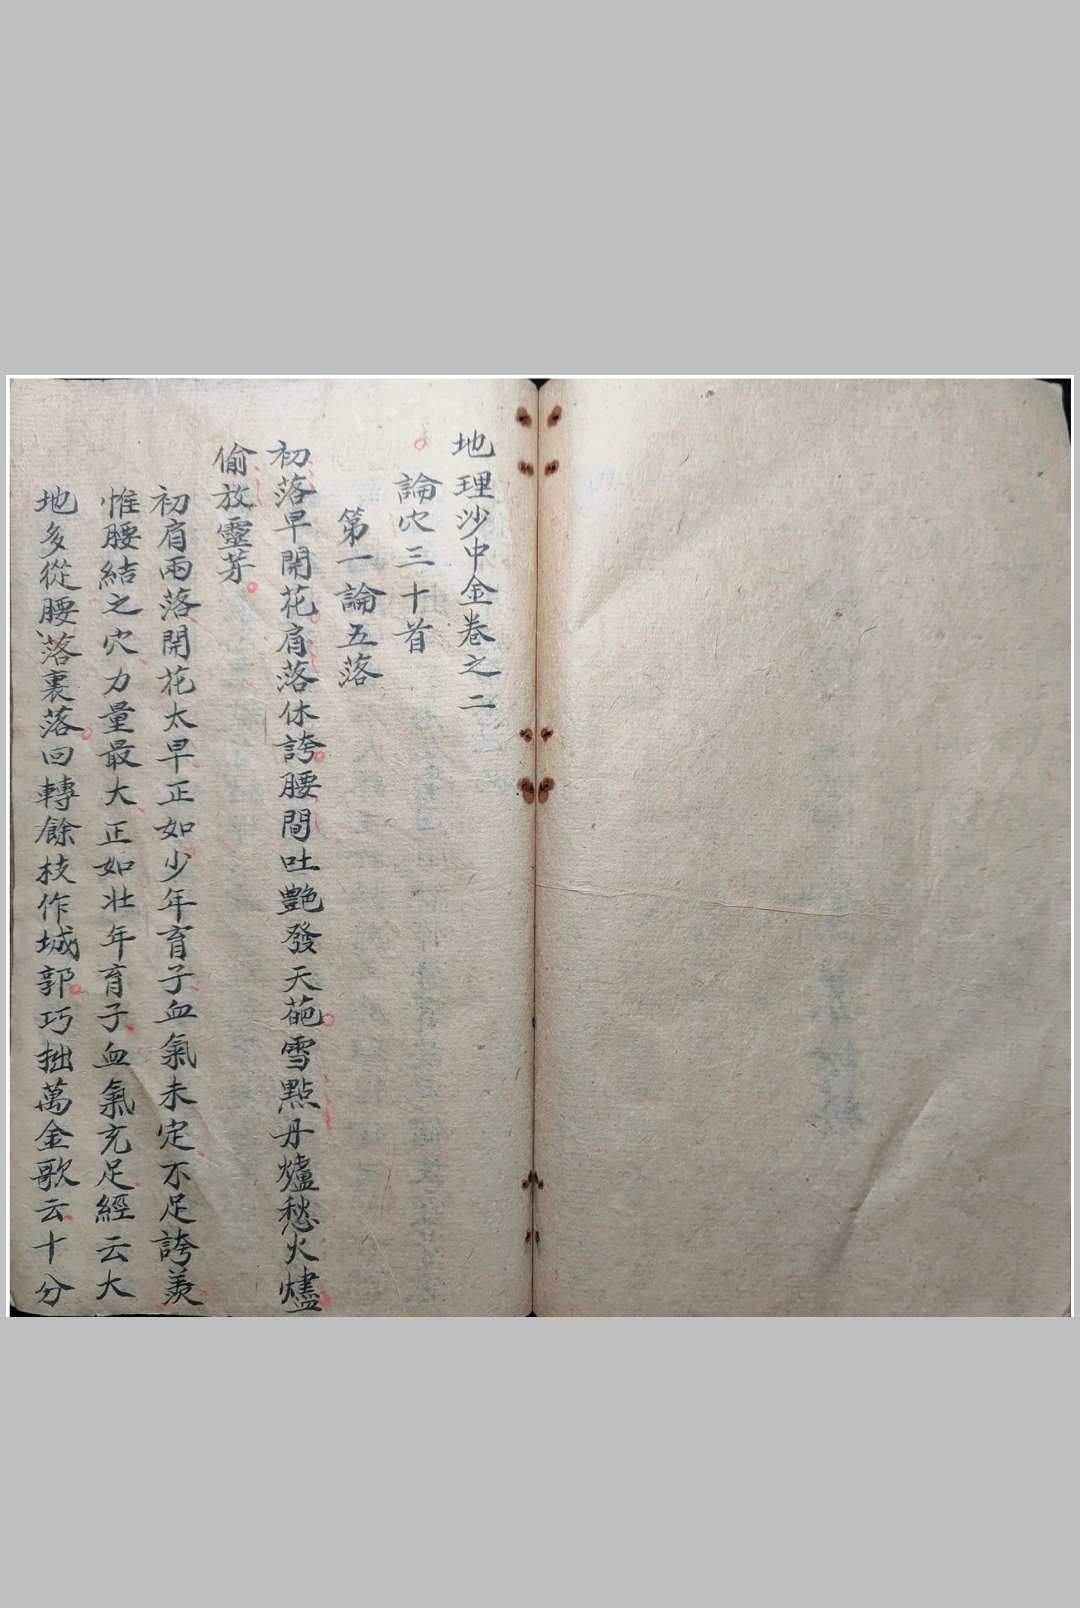 地理沙中金卷之二
論穴三十首
第一論五落
初落早開花肩落休誇腰間吐艶發天葩雪點丹爐愁火燼
偷放靈芽
初肩兩落開花太早正如少年育子血氣未定不足誇羨
惟腰結之穴力量最大正如壯年育子血氣充足經云大
地多從腰落裏落回轉餘枝作城郭巧拙萬金歌云十分